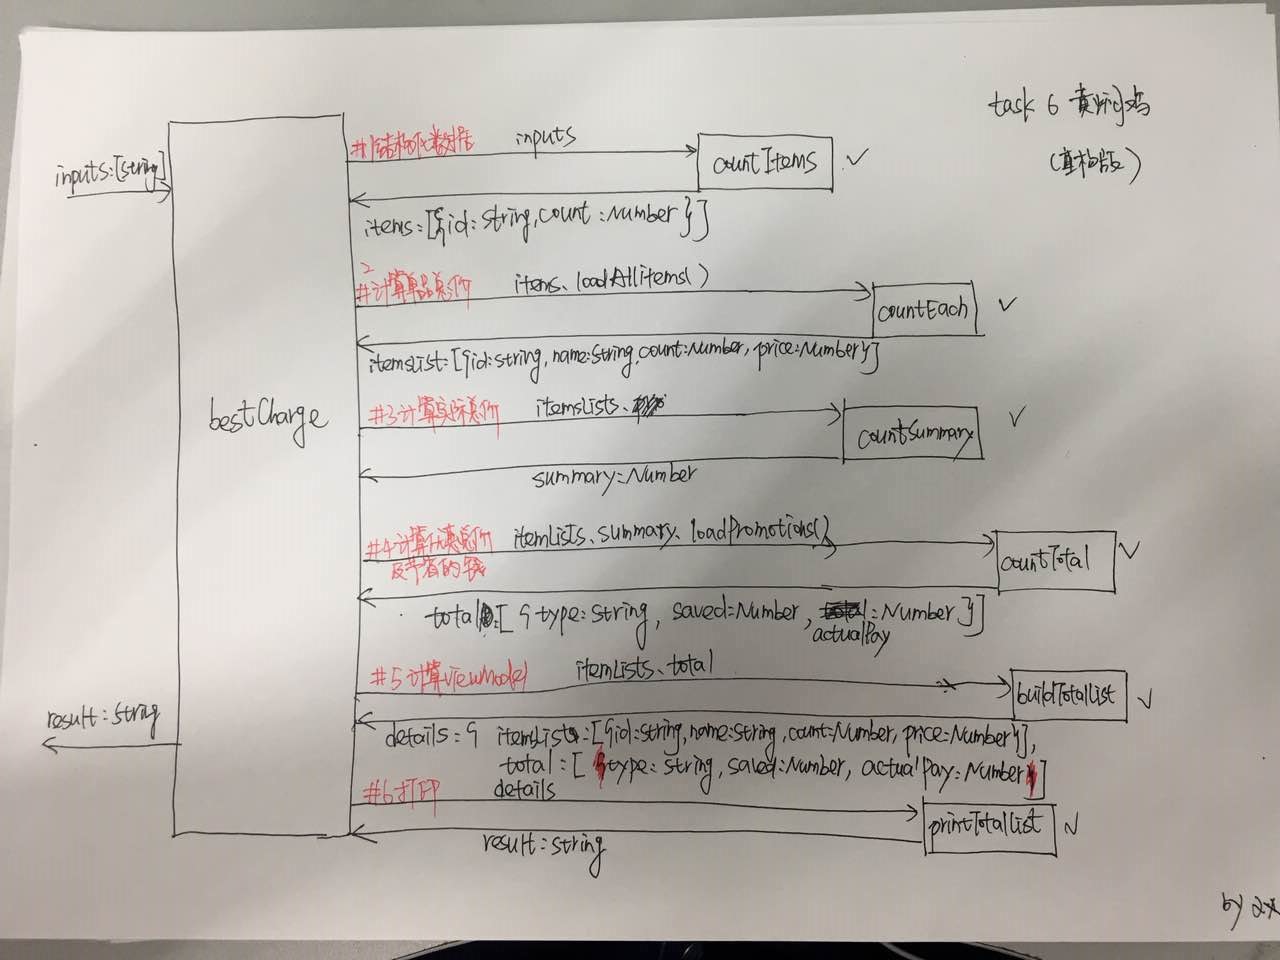 task 6 黄焖鸡
(直构版)
inputs:[string]
#1结构化数据
inputs
countItems
items=[{id:string,count:Number}]
#2计算单品总价
items、loadAllItems()
countEach
itemsList:[{id:string,name:string,count:Number,price:Number}]
bestCharge
#3计算实际总价
itemsLists、
countSummary
summary=Number
#4计算优惠总价
及节省的钱
itemLists、summary、loadPromotions()
countTotal
total:[{type:string,saved:Number,actualPay:Number}]
#5计算viewModel
itemLists、total
buildTotalList
result:string
details={itemsLists:[{id:string,name:string,count:Number,price:Number}],
total=[{type:string,saved:Number,actualPay:Number}]
#6打印
details
printTotalList
result:string
by